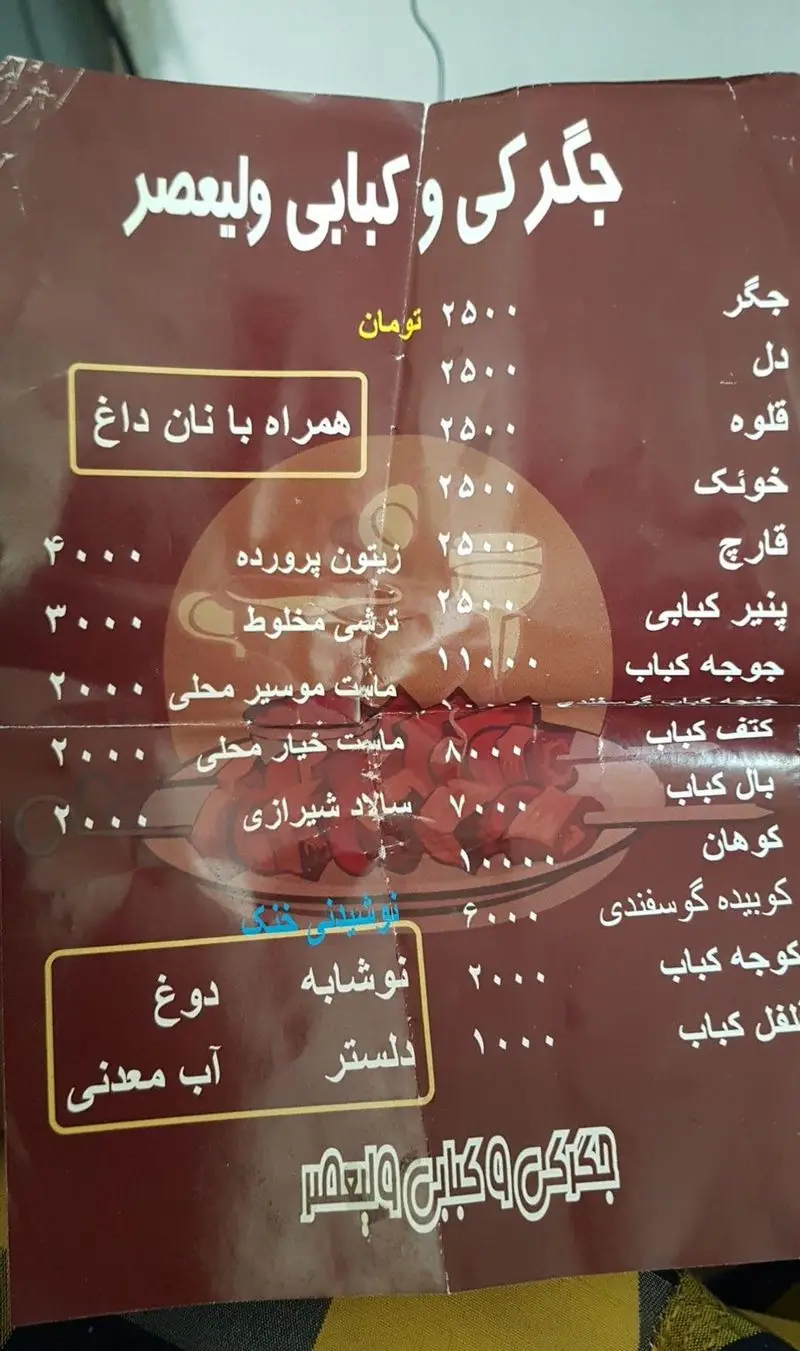 جگرکی و کبابی ولیعصر
جگر ۲۵۰۰ تومان
دل ۲۵۰۰
قلوه ۲۵۰۰
خوئک ۲۵۰۰
قارچ ۲۵۰۰
پنیر کبابی ۲۵۰۰
جوجه کباب ۱۱۰۰۰
کتف کباب ۸۰۰۰
بال کباب ۷۰۰۰
کوهان ۱۰۰۰۰
کوبیده گوسفندی ۶۰۰۰
کوجه کباب ۲۰۰۰
فلفل کباب ۱۰۰۰
همراه با نان داغ
زیتون پرورده ۴۰۰۰
ترشی مخلوط ۳۰۰۰
ماست موسیر محلی ۲۰۰۰
ماست خیار محلی ۲۰۰۰
سالاد شیرازی ۲۰۰۰
نوشیدنی خنک
نوشابه دوغ
دلستر آب معدنی
جگرکی و کبابی ولیعصر